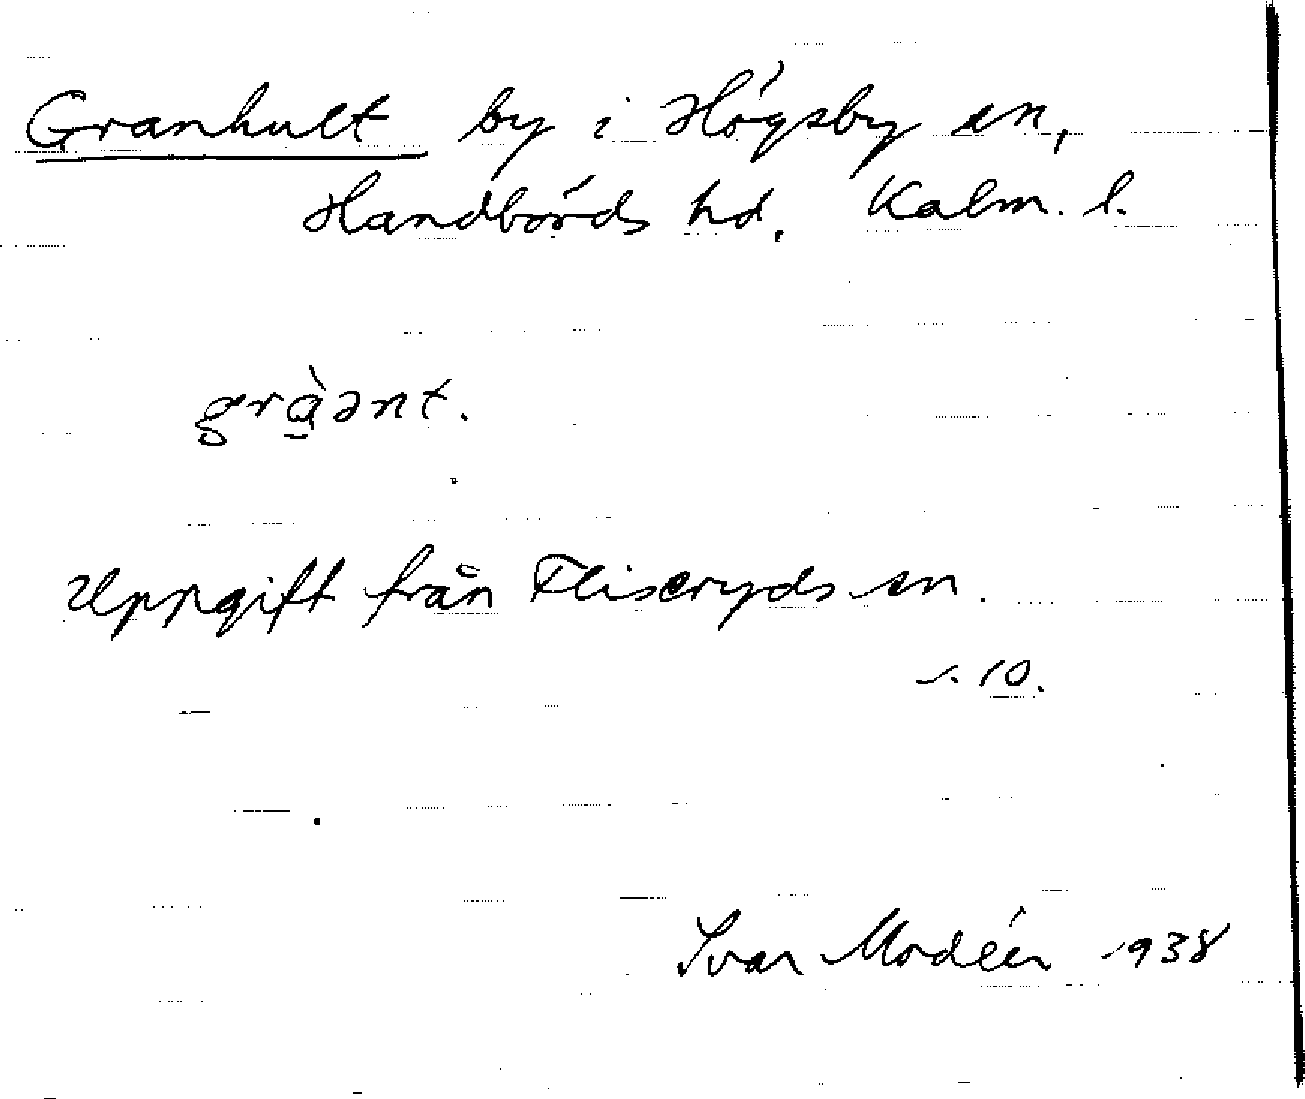 Granhult by i Högsby sn,
Handbörds hd. Kalm. l.
grɑ̱̀ənt.
Uppgift från Fliseryds sn.
s. 10.
Ivar Modéer 1938